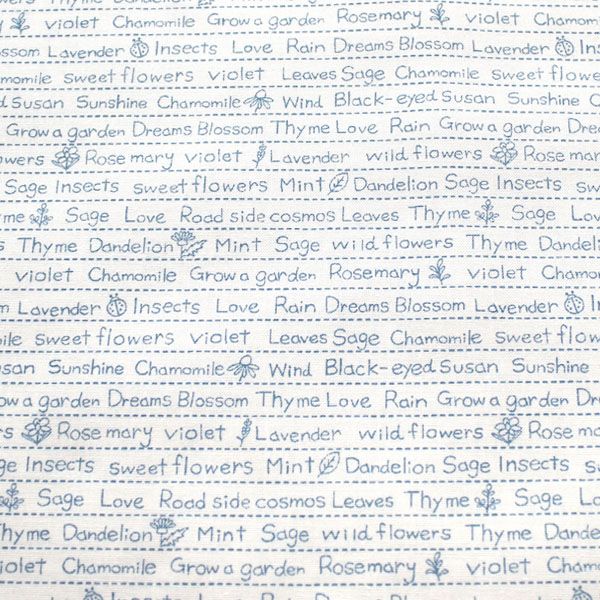 Chamomile Grow a garden Rosemary violet Chamomi
ssom Lavender Insects Love Rain Dreams Blossom Lavender Ins
momile sweet flowers violet Leaves Sage Chamomile sweet flowe
d Susan Sunshine Chamomile Wind Black-eyed Susan Sunshine C
Grow a garden Dreams Blossom Thyme Love Rain Grow a garden Drea
owers Rose mary violet Lavender wild flowers Rose mar
Sage Insects sweet flowers Mint Dandelion Sage Insects sw
me Sage Love Road side cosmos Leaves Thyme Sage Lov
s Thyme Dandelion Mint Sage wild flowers Thyme Dandeli
violet Chamomile Grow a garden Rosemary violet Chamom
m Lavender Insects Love Rain Dreams Blossom Lavender In
ile sweet flowers violet Leaves Sage Chamomile sweet flow
usan Sunshine Chamomile Wind Black-eyed Susan Sunshine
ow a garden Dreams Blossom Thyme Love Rain Grow a garden Dr
rs Rose mary violet Lavender wild flowers Rose ma
ge Insects sweet flowers Mint Dandelion Sage Insects s
Sage Love Road side cosmos Leaves Thyme Sage Lo
Thyme Dandelion Mint Sage wild flowers Thyme Dande
iolet Chamomile Grow a garden Rosemary violet Cham
Insects Love Rain Dreams Blossom Lavender